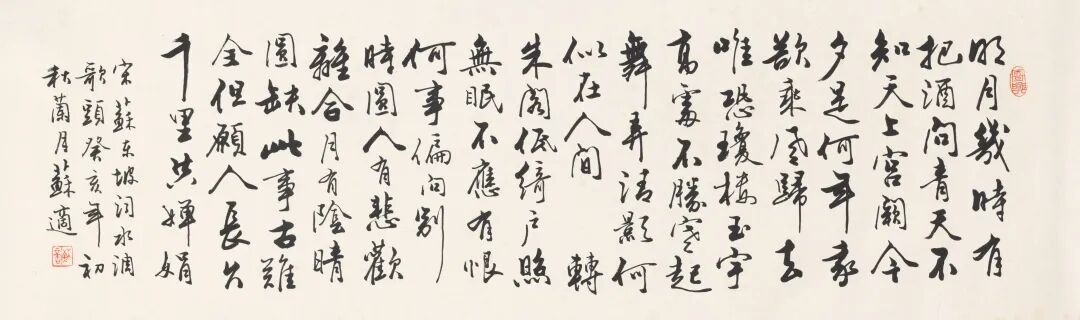 明月幾時有
把酒問青天不
知天上宮闕今
夕是何年我
欲乘風歸去
唯恐瓊樓玉宇
高處不勝寒起
舞弄清影何
似在人間轉
朱閣低綺戶照
無眠不應有恨
何事偏向別
時圓人有悲歡
離合月有陰晴
圓缺此事古難
全但願人長久
千里共嬋娟
宋蘇東坡詞水調
歌頭癸亥年初
秋蘭月蘇適